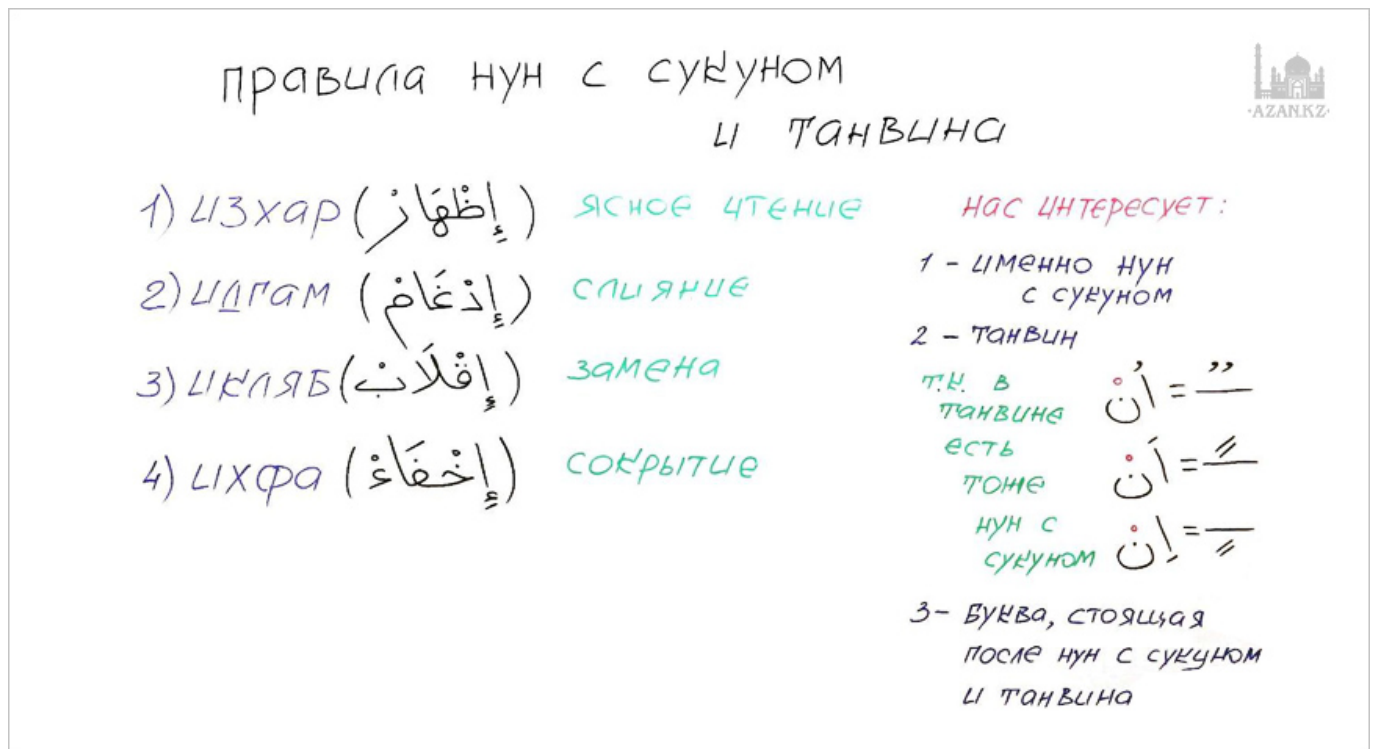 правила нун с сукуном
и танвина
·AZAN.KZ·
1) изхар (إِظْهَارْ) ясное чтение
2) идгам (إِدْغَامْ) слияние
3) икляб (إِقْلَابْ) замена
4) ихфа (إِخْفَاءْ) сокрытие
нас интересует:
1 - именно нун
с сукуном
2 - танвин
т.к. в
танвине
есть
тоже
нун с
сукуном
اُنْ =
اَنْ =
اِنْ =
3- буква, стоящая
после нун с сукуном
и танвина